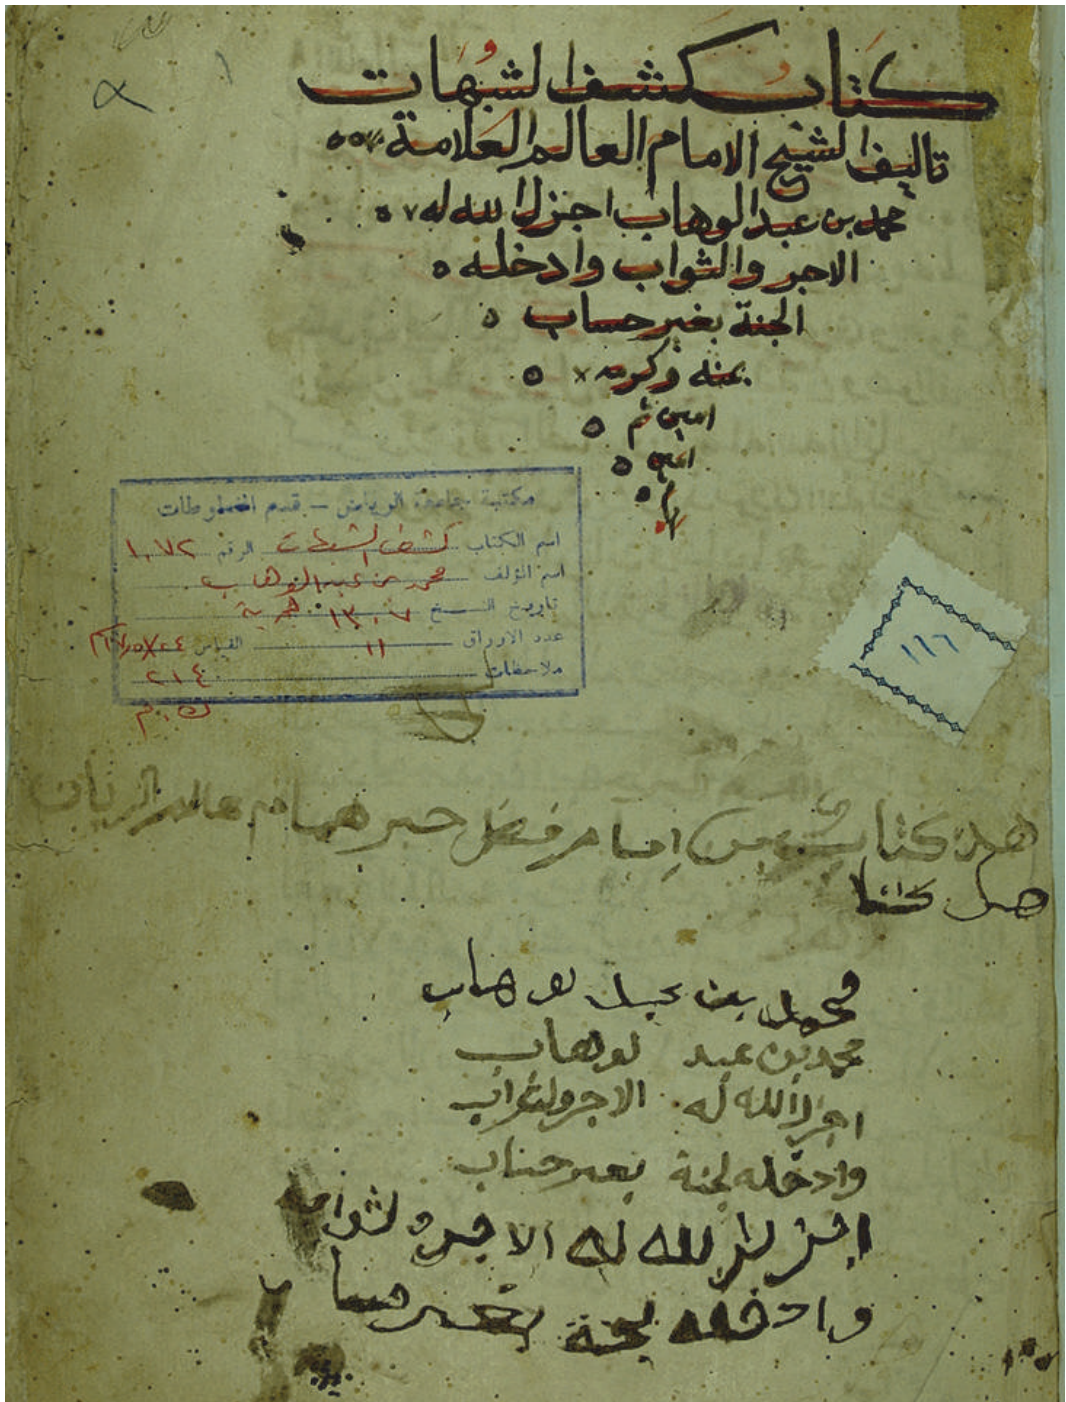 كتاب كشف الشبهات
تاليف الشيخ الامام العالم العلامة
محمد بن عبد الوهاب اجزل الله له
الاجر والثواب وادخله
الجنة بغير حساب
بمنه وكرمه
امين ثم
امين
مكتبة جامعة الرياض - قسم المخطوطات
اسم الكتاب كشف الشبهات الرقم ١٠٧٢
اسم المؤلف محمد بن عبد الوهاب
تاريخ النسخ ١٣٠٧ هجرية
عدد الاوراق ١١ القياس
ملاحظات ٢١٤
١١٦
هذا كتاب من امام فضل حبر همام
هذا كتا
محمد بن عبد لوهاب
محمد بن عبد لوهاب
اجزل الله له الاجر ولثواب
وادخله لجنة بغير حساب
اجزل لله له الاجر ولثواب
وادخله لجنة بغير حسا